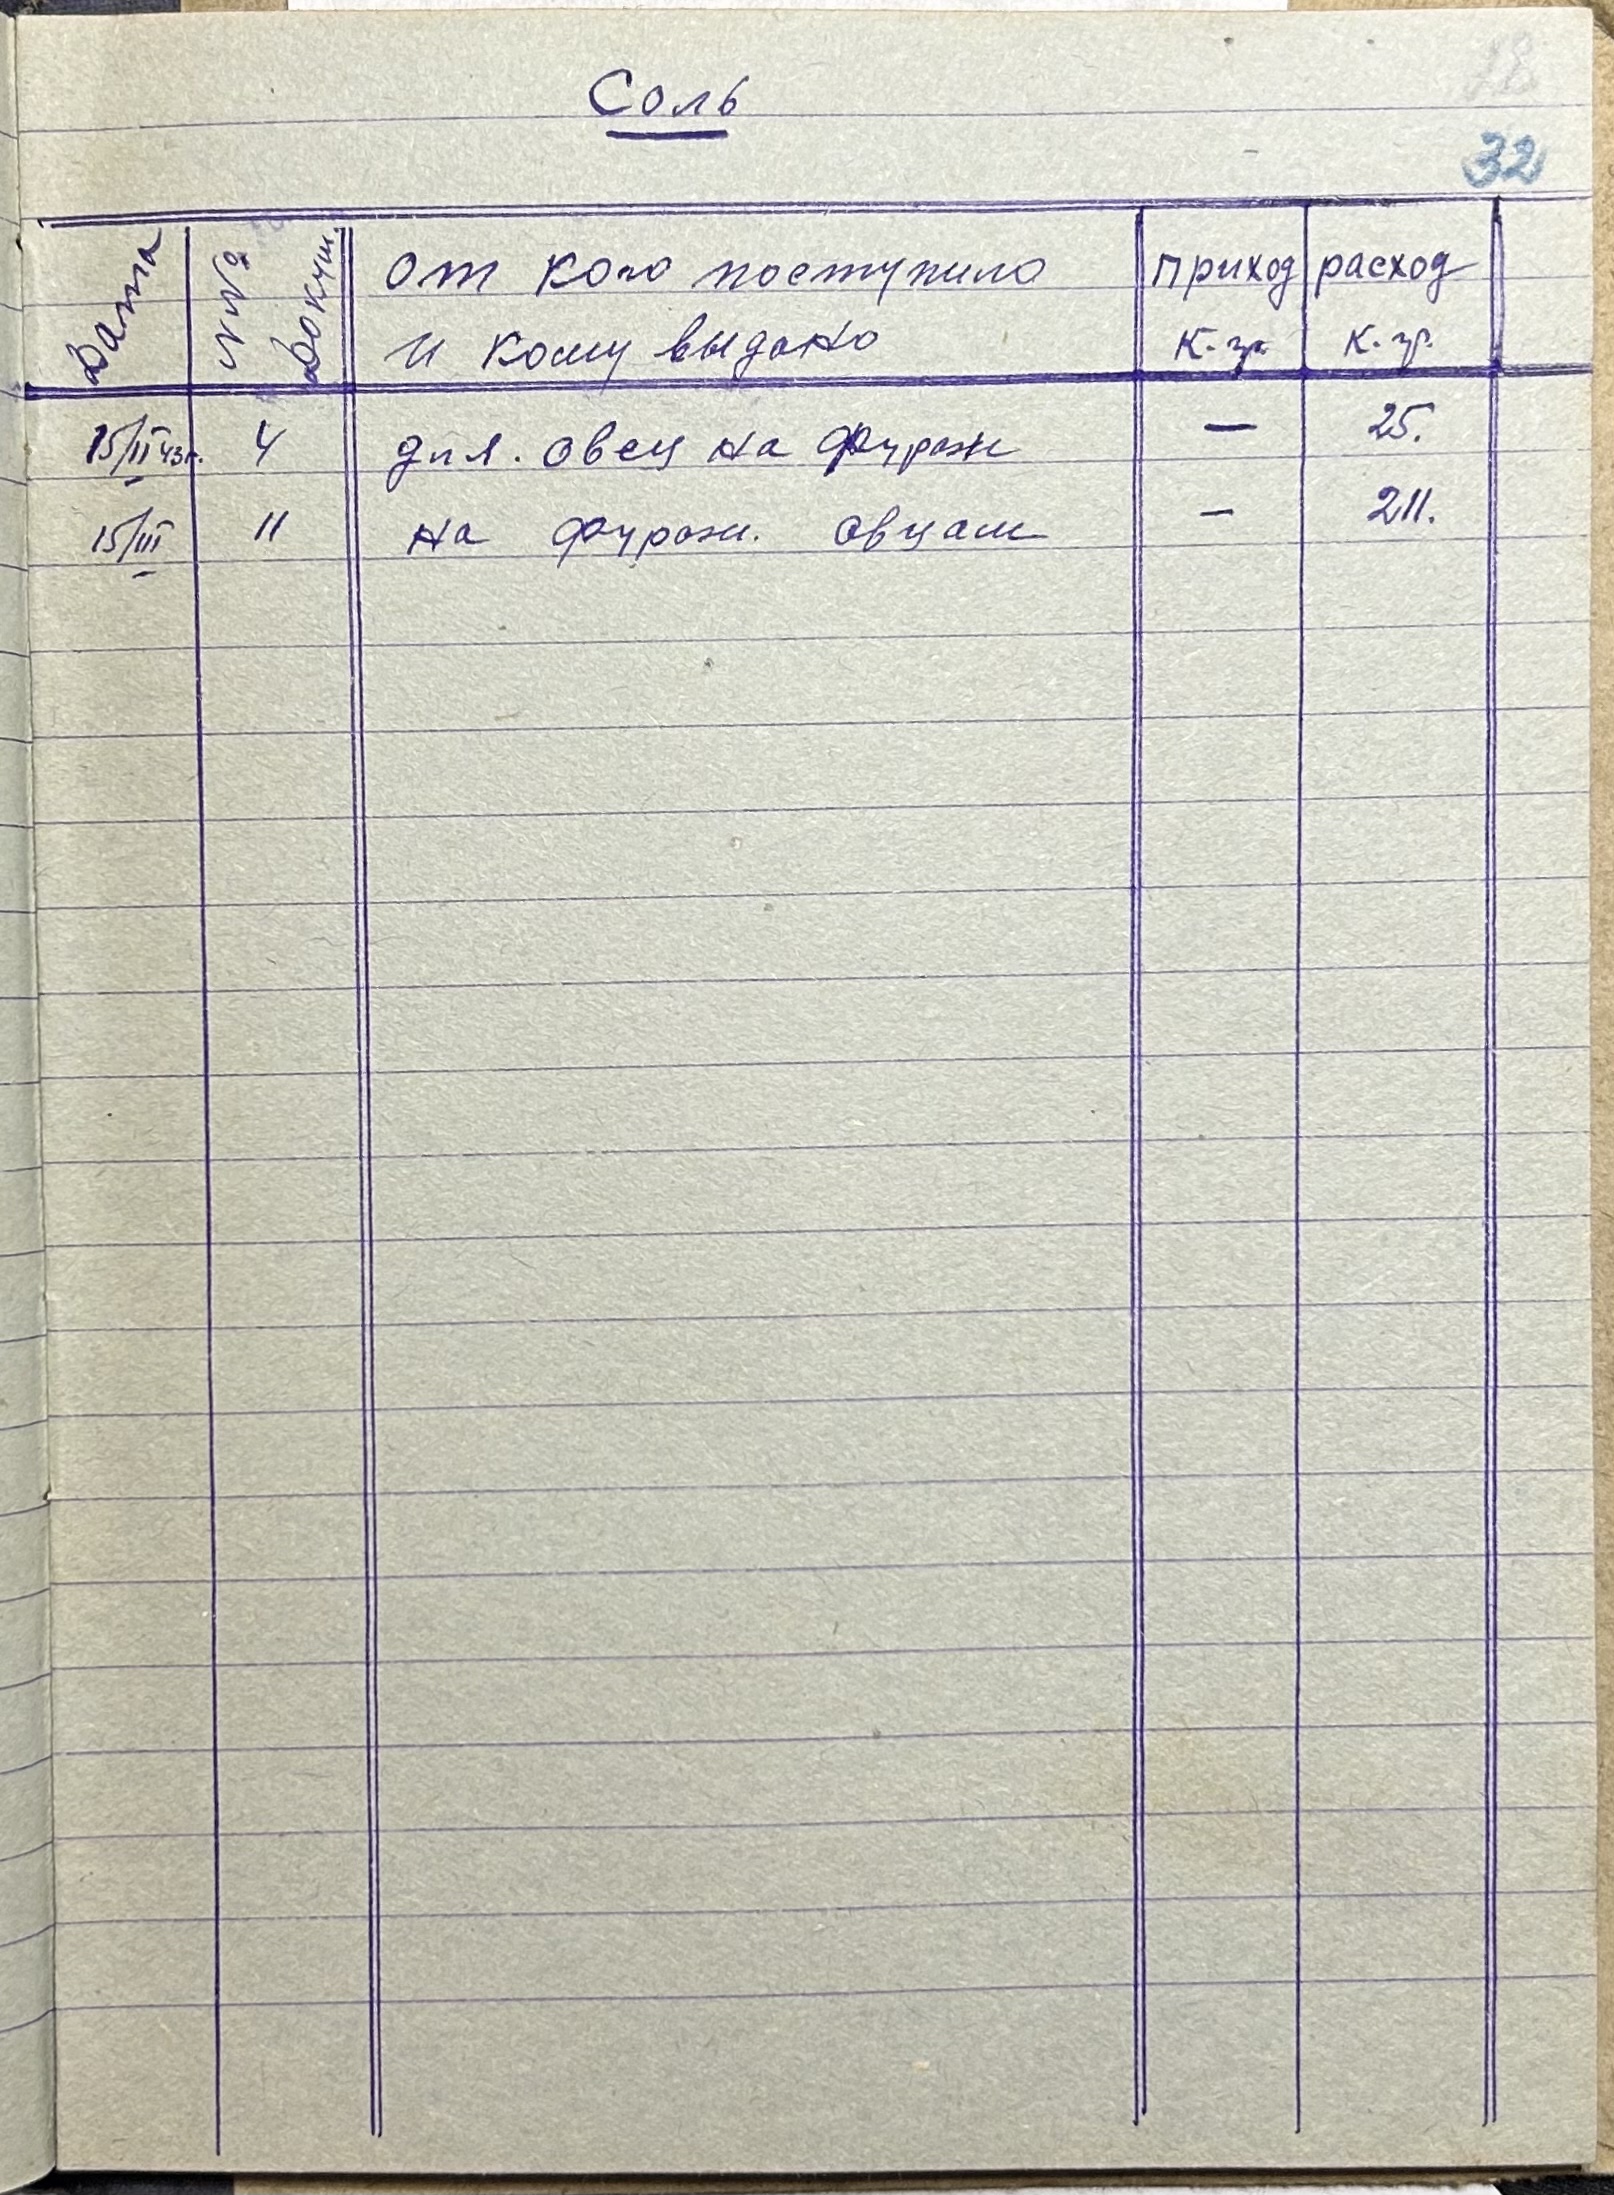 Соль
18
32
Дата
№№ Докум.
от кого поступило
и кому выдано
приход
к-гр.
расход
к-гр.
15/II 43г. 4 для. овец на фураж — 25.
15/III 11 на фураж. овцам — 211.